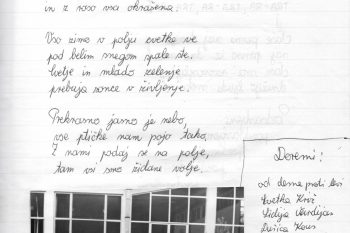 in z roso vsa okrašena.
Vso zimo v polju cvetke ve
pod belim snegom spale ste.
Cvetje in mlado zelenje
prebuja sonce v življenje.
Prekrasno jasno je nebo,
vse ptičke nam pojo tako,
Z nami podaj se na polje,
tam vsi smo židane volje.
Doremi:
od desne proti levi
Cvetka Krč
Lidija